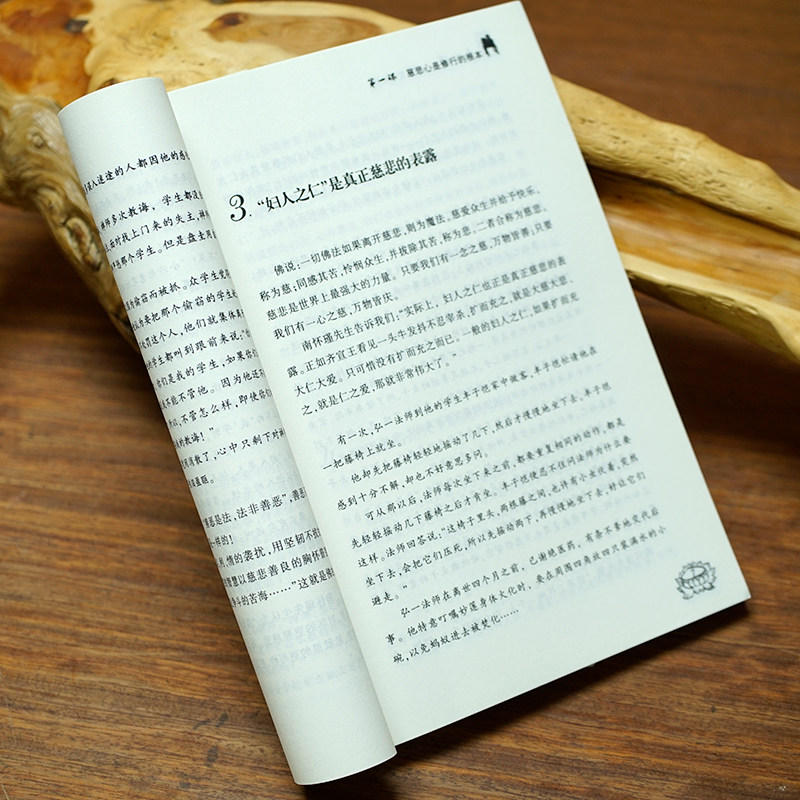 入迷途的人都因他的感
禅师多次教诲，学生都没
临时找上门来的失主，禅
那个学生。但是盘圭
为偷窃而被抓。众学生
为要把那个偷窃的学生
罚这个人，他们就集体
学生都叫到跟前来说：“
们是我的学生，如果你们
能不管他。因为他还不
，不管怎么样，即使你们
我的教诲！”
，心中只剩下对
恶是法，法非善恶”，善恶
一样的！
情的袭扰，用坚韧不拔
智慧以慈悲善良的胸怀
斗的苦海……”这就是佛
第一课 慈悲心是修行的根本
3.“妇人之仁”是真正慈悲的表露
佛说：一切佛法如果离开慈悲，则为魔法。慈爱众生并给予快乐，
称为慈；同感其苦，怜悯众生，并拔除其苦，称为悲，二者合称为慈悲。
慈悲是世界上最强大的力量。只要我们有一念之慈，万物皆善；只要
我们有一心之慈，万物皆庆。
南怀瑾先生告诉我们：“实际上，妇人之仁也正是真正慈悲的表
露。正如齐宣王看见一头牛发抖不忍宰杀，扩而充之，就是大慈大悲、
大仁大爱。只可惜没有扩而充之而已。一般的妇人之仁，如果扩而充
之，就是仁之爱，那就非常伟大了。”
有一次，弘一法师到他的学生丰子恺家中做客，丰子恺就请他在
一把藤椅上就坐。
他却先把藤椅轻轻地摇动了几下，然后才慢慢地坐下去。丰子恺
感到十分不解，却也不好意思多问。
可从那以后，法师每次坐下来之前，都要重复相同的动作，都是
先轻轻摇动几下藤椅之后才有坐。丰子恺便忍不住问法师为什么要
这样。法师回答说：“这椅子里头，两根藤之间，也许有小虫伏着，突然
坐下去，会把它们压死，所以先摇动两下，再慢慢地坐下去，好让它们
避走。”
弘一法师在离世四个月之前，已谢绝医药，有条不紊地交代后
事。他特意叮嘱妙莲身体火化时，要在周围四角放四只装满水的小
碗，以免蚂蚁进去被焚化……